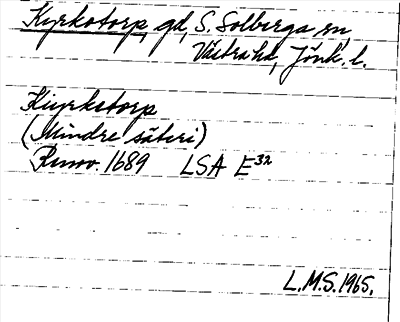 Kyrkotorp, gd, S. Solberga sn,
Västra hd, Jönk. l.
Kiyrketorp
(Mindre säteri)
Renov. 1689 LSA E³²
L.M.S. 1965.